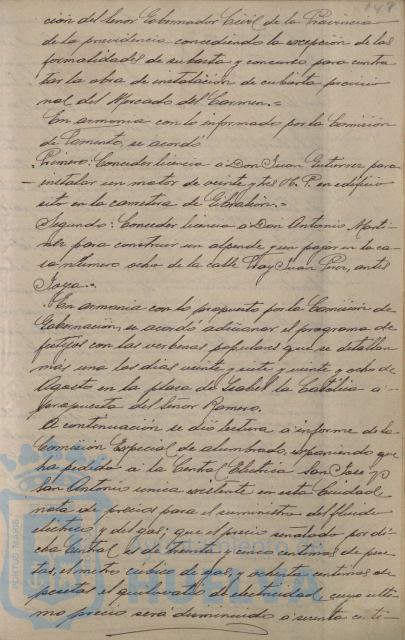 148
ción del Señor Gobernador Civil de la Provincia
de la providencia concediendo la excepción de las
formalidades de subasta y concurso para contra
tar la obra de instalación de cubierta provisio
nal del Mercado del Carmen.=
En armonia con lo informado por la Comisión
de Fomento, se acordó
Primero: Conceder licencia a Don Juan Gutierrez para
instalar un motor de veinte y tres H. P. en edificio
sito en la carretera de Gibraleon.=
Segundo: Conceder licencia a Don Antonio Marti-
nez para construir un alpende y un pajar en la ca-
sa número ocho de la calle Fray Juan Perez, antes
Joya.=
En armonia con lo propuesto por la Comisión de
Gobernación, se acordó adicionar el programa de
festejos con las verbenas populares que se detallan
más una los dias veinte y siete y veinte y ocho de
Agosto en la plaza de Isabel la Católica a
propuesta del Señor Romero.
A continuación se dió lectura a informe de la
Comisión Especial de alumbrado, exponiendo que
ha pedido a la Central Eléctrica San Jose y
San Antonio unica existente en esta Ciudad
nota de precios para el suministro del fluido
eléctrico y del gas; que el precio señalado por di-
cha Central es de treinta y cinco centimos de pese
tas, el metro cúbico de gas, y ochenta centimos de
pesetas el quilovatio de electricidad cuyo ulti-
mo precio será disminuido a setenta centi-
PORTUS MARIS
HUELVA